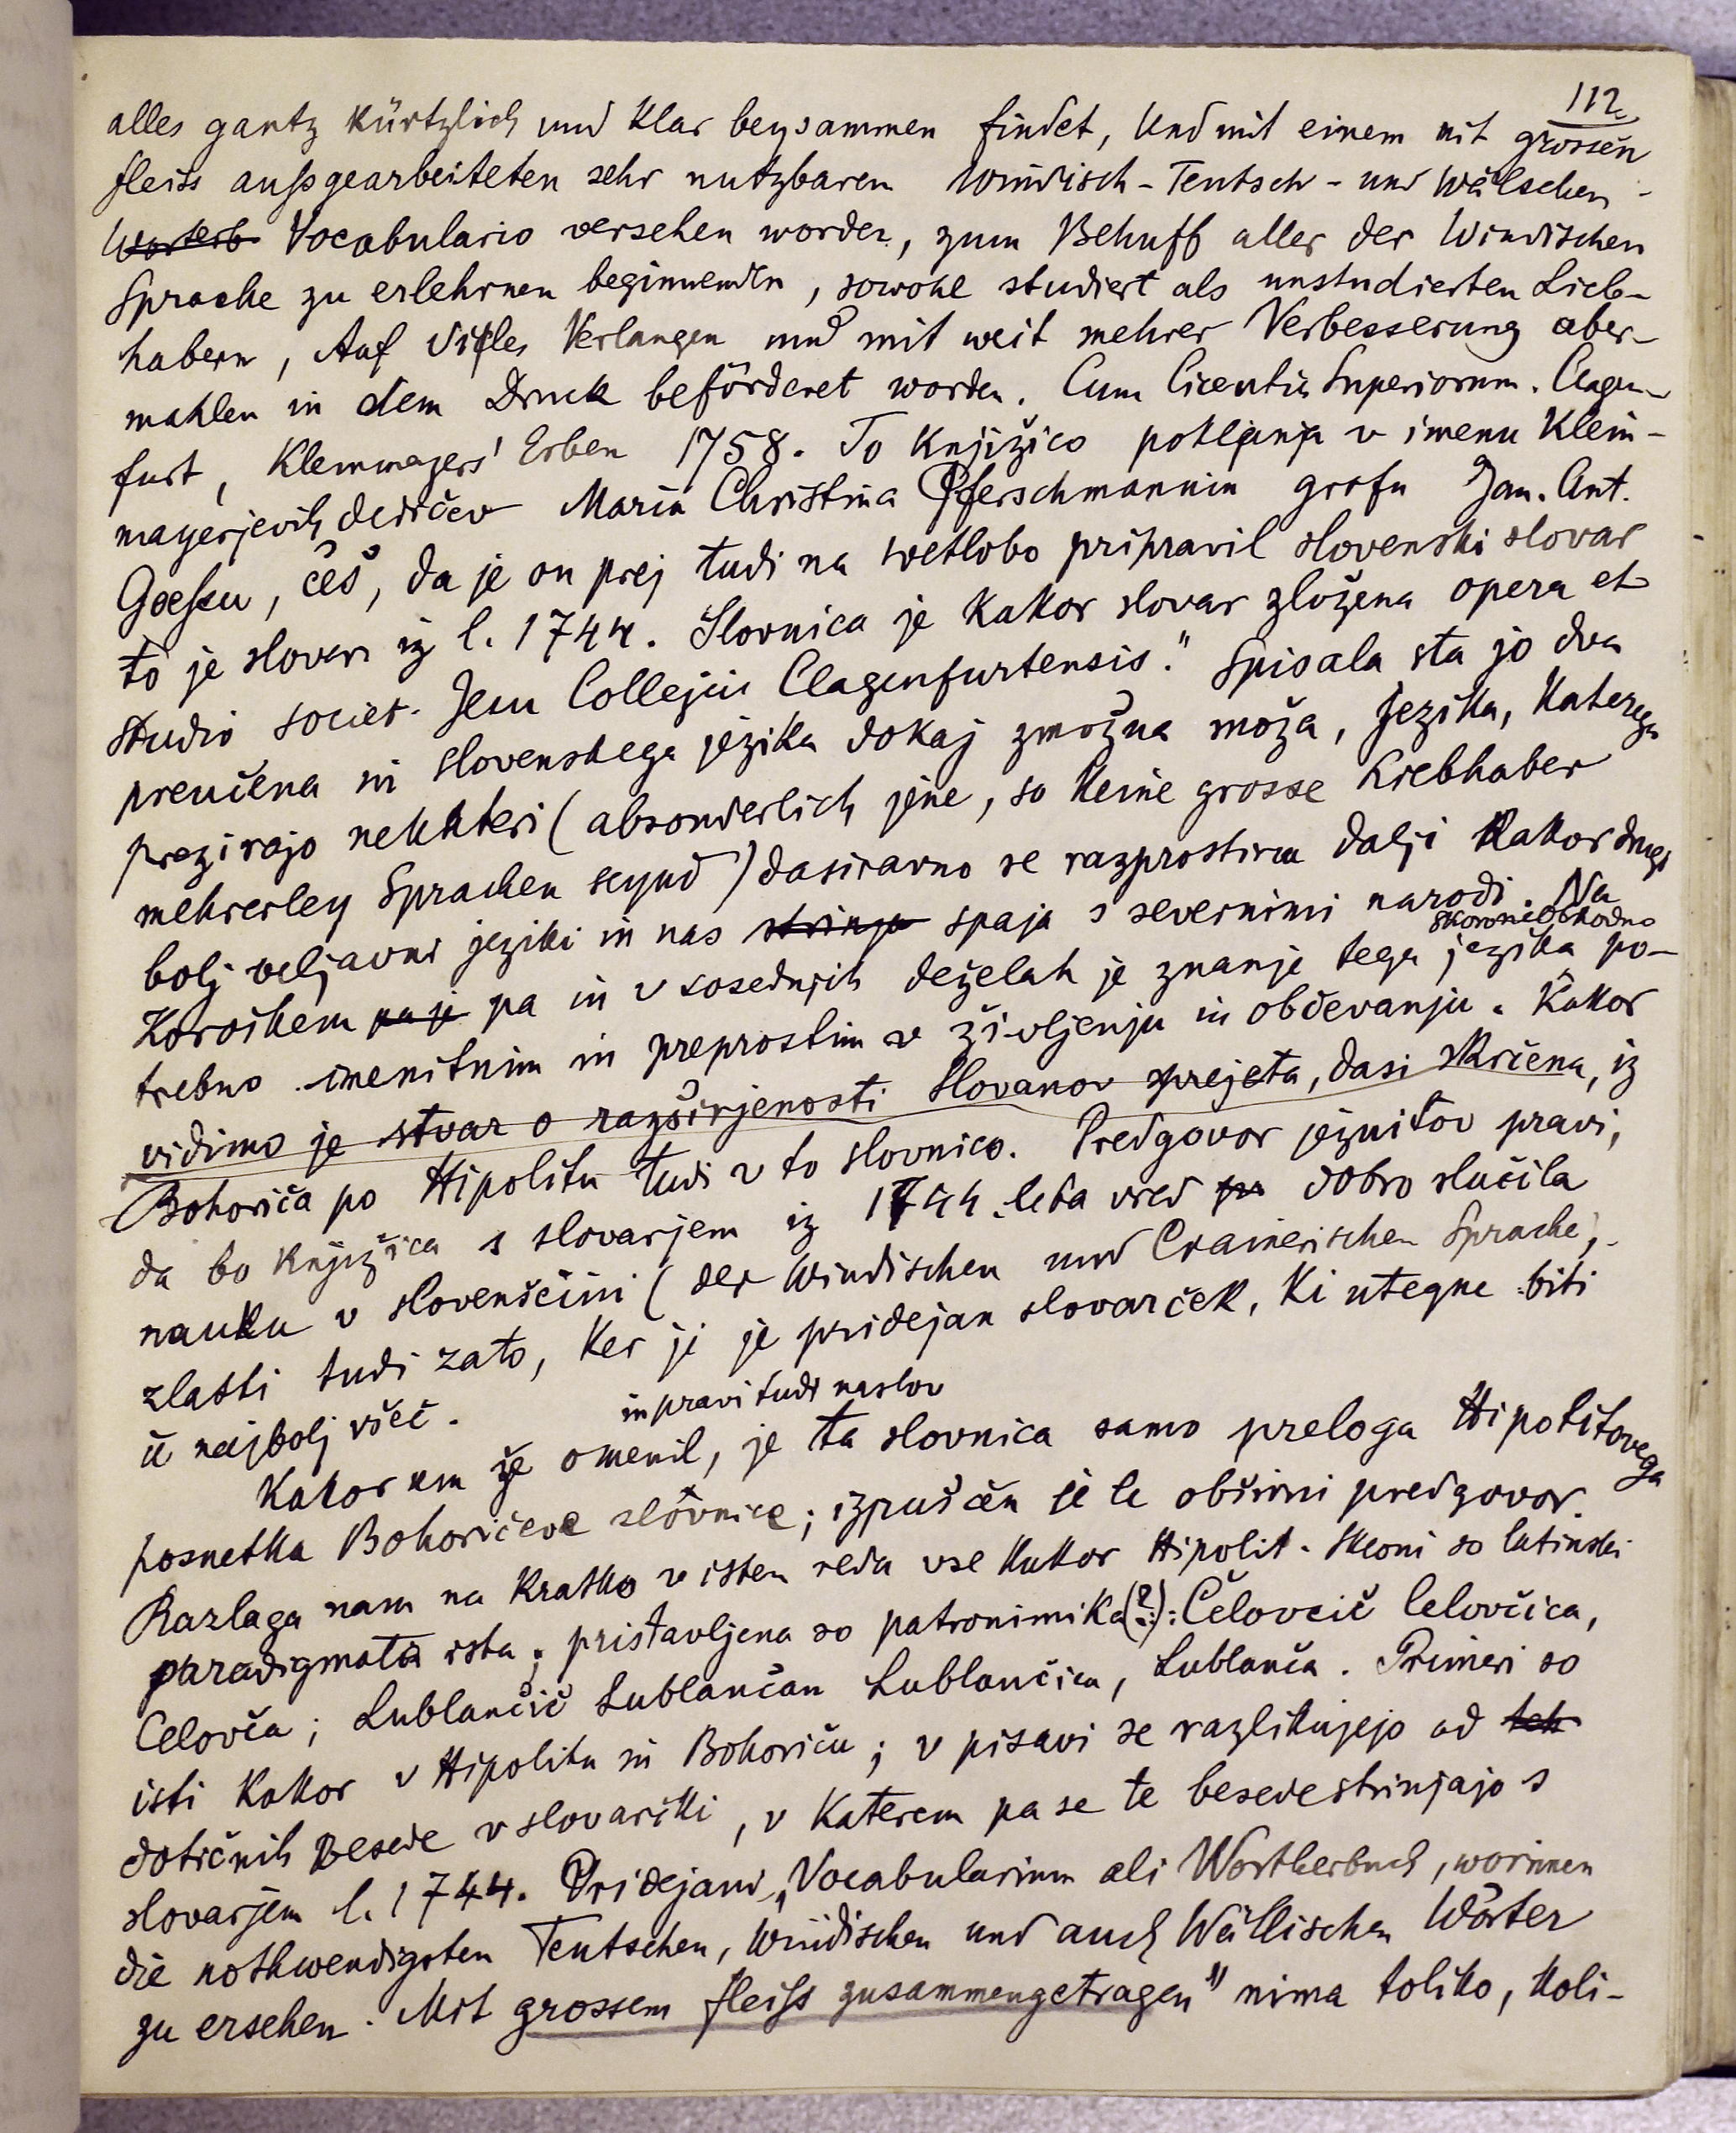 112.
alles gantz kürtzlich und klar beysammen findet, Und mit einem mit grossen
fleiss außgearbeiteten sehr nutzbaren Windisch-Teutsch- und Wälschen-
Worterb Vocabulario versehen worden, zum Behuff aller der Windischen
Sprache zu erlehrnen beginnenden, sowohl studiert als unstudierten Lieb-
habern, Auf Vifles Verlangen und mit weit mehrer Verbesserung aber-
mahlen in dem Druck beförderet worden. Cum Licentia Superiorum. Clagen-
furt, Klemmayers' Erben 1758. To knjižico poklanja v imenu Klein-
mayerjevih dedičev Maria Christina Pferschmannin grofu Jan. Ant.
Goeßu, češ, da je on prej tudi na svetlobo pripravil slovenski slovar
to je slovar iz l. 1744. Slovnica je kakor slovar zložena opera et
studio societ. Jesu Collegii Clagenfurtensis." Spisala sta jo dva
preučena in slovenskega jezika dokaj zmožna moža, jezika, katerega
prezirajo nekkteri (absonderlich jene, so keine grosse Liebhaber
mehrerley Sprachen seynd) dasiravno se razprostira dalji kakor drugi
bolj veljavni jeziki in nas strinja spaja s severnimi narodi. Na
skoro neobhodno
Koroškem pa je pa in v sosednjih deželah je znanje tega jezika po-
trebno imenitnim in preprostim v življenju in občevanju. Kakor
vidimo je stvar o razširjenosti Slovanov sprejeta, dasi skrčena, iz
Bohoriča po Hipolitu tudi v to slovnico. Predgovor jezuitov pravi,
da bo knjižica s slovarjem iz 1744. leta vred pa dobro služila
nauku v slovenščini (der Windischen und Crainerischen Sprache),
zlasti tudi zato, ker ji je pridejan slovarček, ki utegne biti
ti najbolj všeč.
in pravi tudi naslov
Kakor sem že omenil, je ta slovnica samo preloga Hipolitovega
posnetka Bohoričeve slovnice; izpuščen je le obširni predgovor.
Razlaga nam na kratko v istem redu vse kakor Hipolit. Skloni so latinski
paradigmata ista; pristavljena so patronimika (?): Čelovcič Celovčica,
Celovča; Lublančič Lublančan Lublančica, Lublanča. Primeri so
isti kakor v Hipolitu in Bohoriču; v pisavi se razlikujejo od teh
dotičnih besede v slovarčki, v katerem pa se te besede strinjajo s
slovarjem l. 1744. Pridejani „Vocabularium ali Wörtherbuch, worinnen
die nothwendigsten Teutschen, Windischen und auch Wällischen Wörter
zu ersehen. Mit grossem fleiß zusammengetragen" nima toliko, koli-